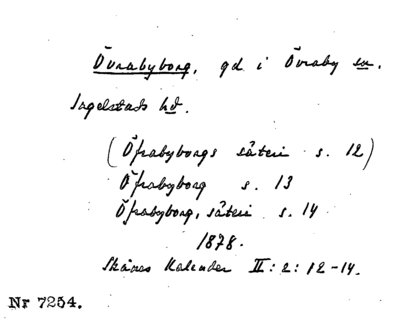 Övrabyborg, gd i Övraby sn.
Ingelstads hd.
(Öfrabyborgs säteri s. 12)
Öfrabyborg s. 13
Öfrabyborg, säteri s. 14
1878.
Skånes Kalender II: 2: 12-14.
Nr 7254.